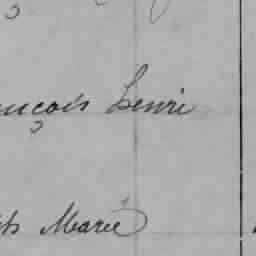 ançois Henri
Marie